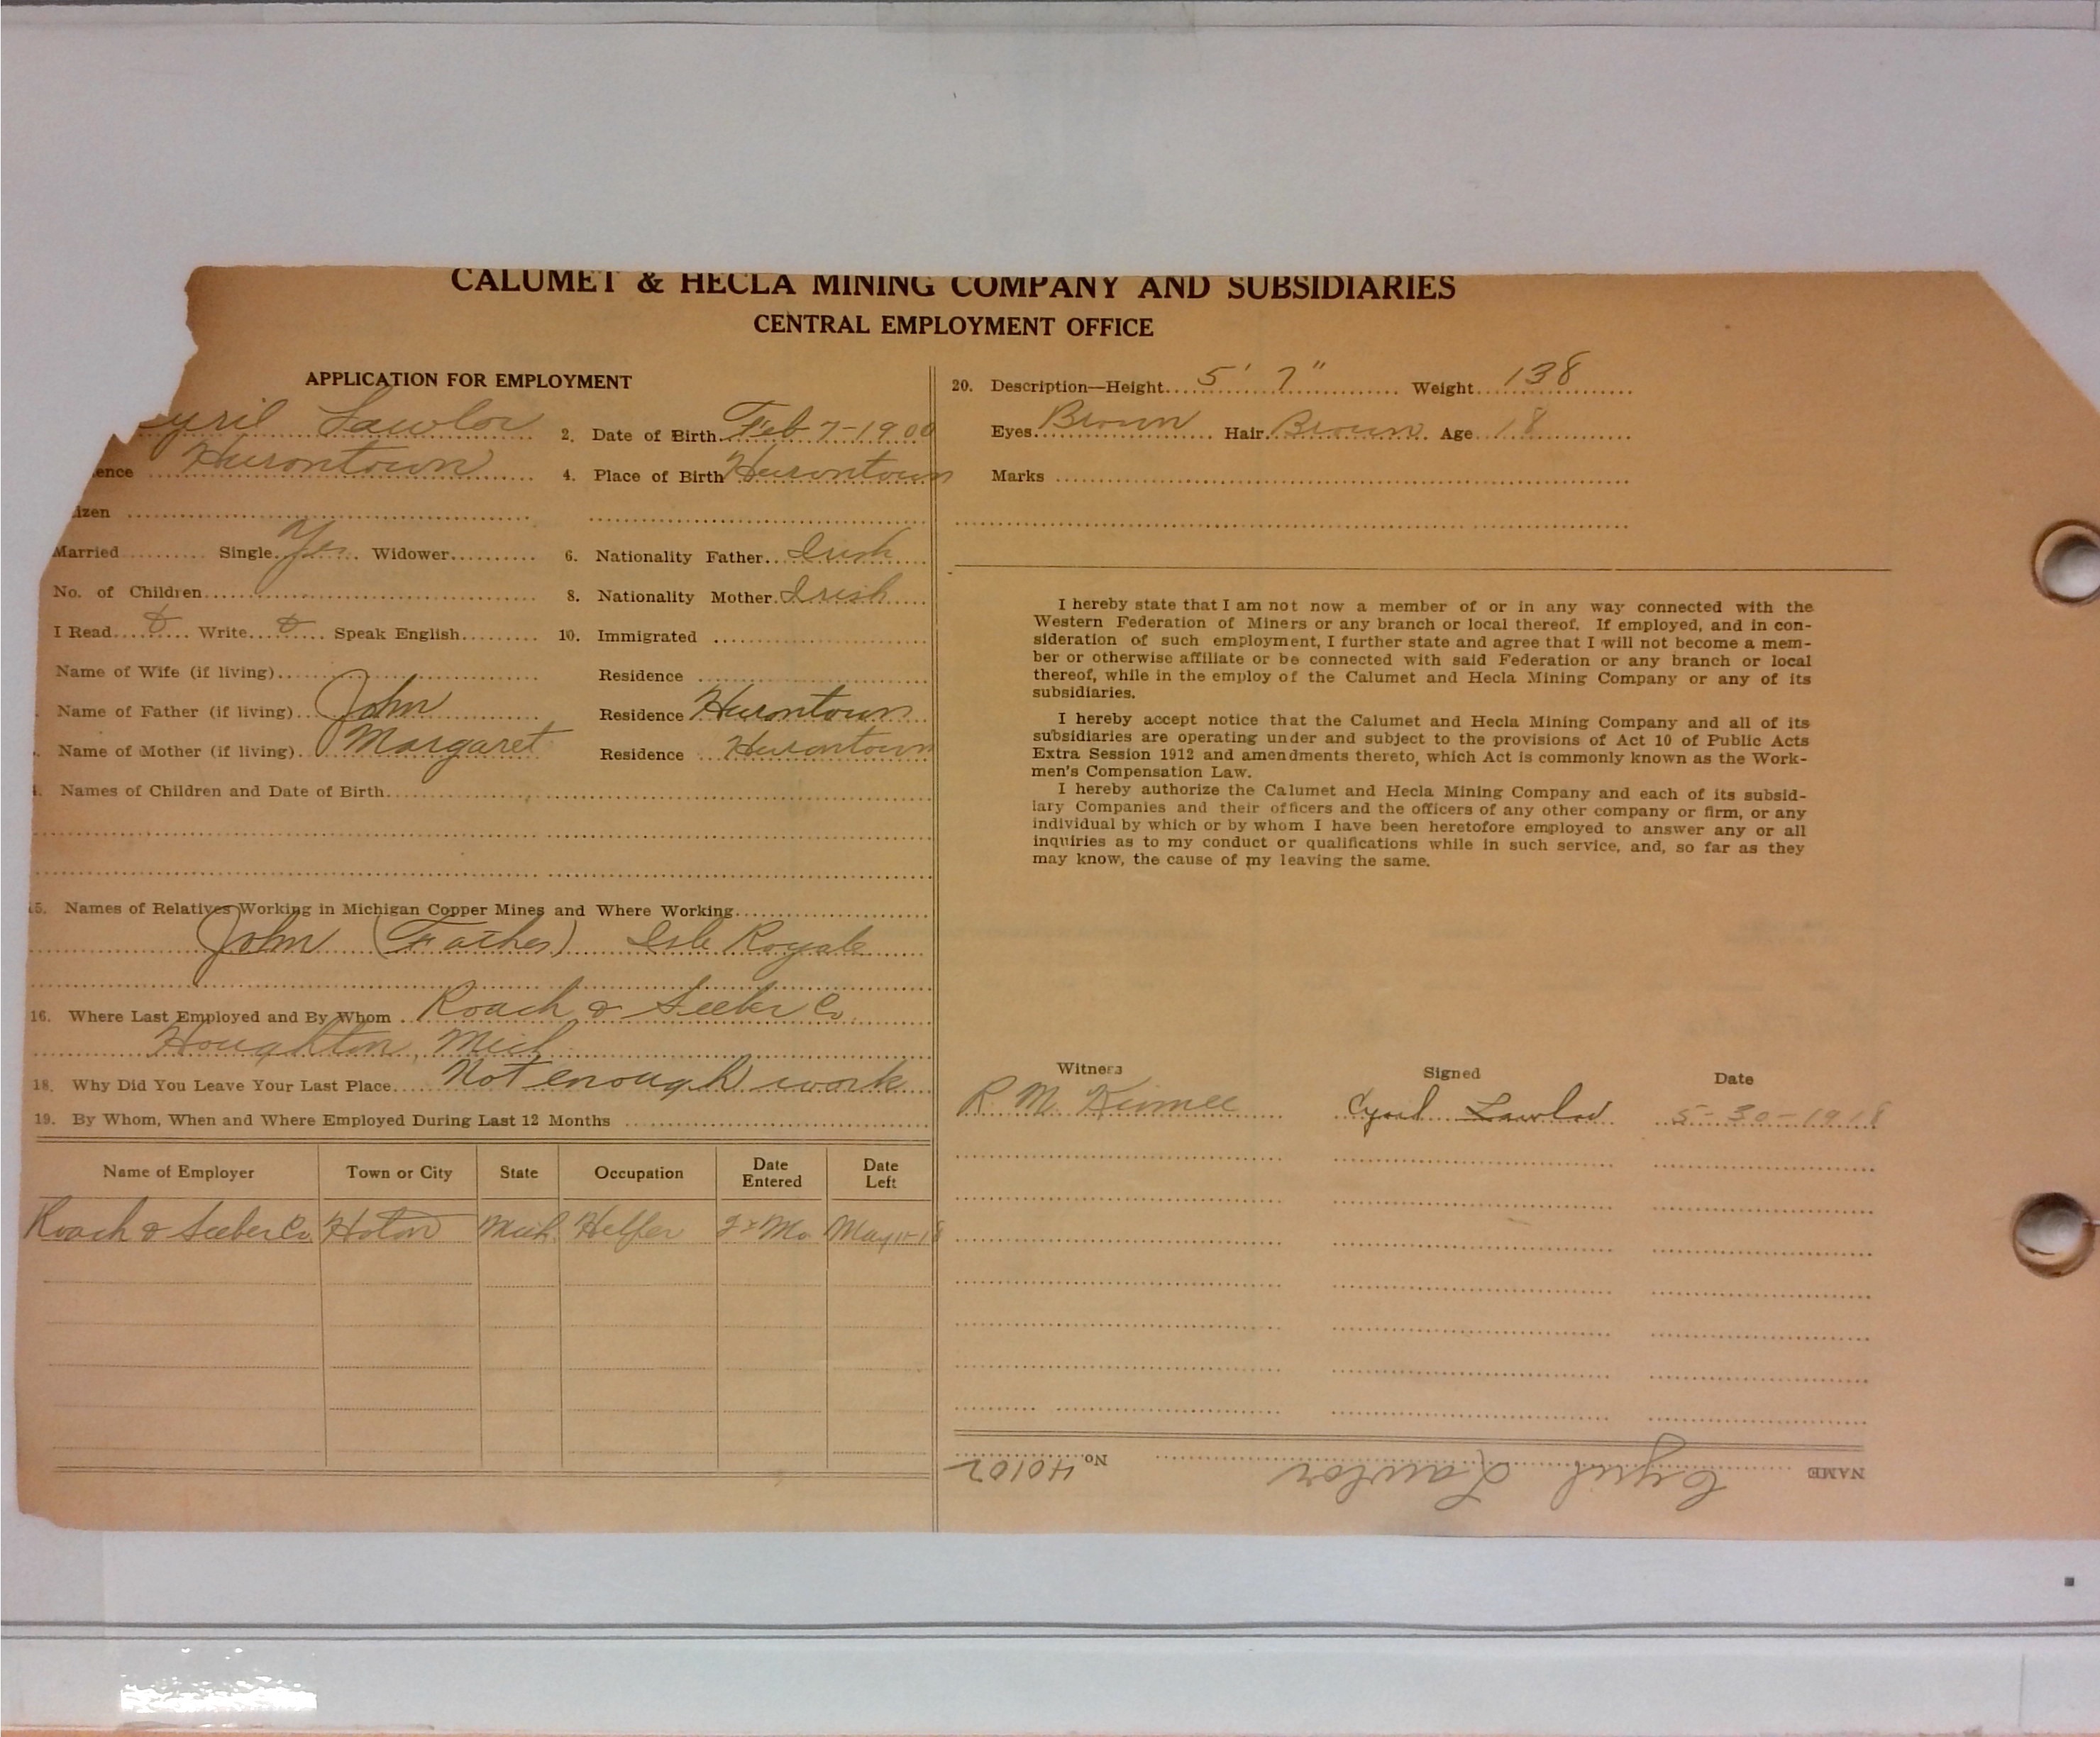 CALUMET & HECLA MINING COMPANY AND SUBSIDIARIES
CENTRAL EMPLOYMENT OFFICE
APPLICATION FOR EMPLOYMENT
yril Lawlor 2. Date of Birth Feb 7-1900
ence Hurontown 4. Place of Birth Hurontown
izen
Married Single Yes Widower 6. Nationality Father Irish
No. of Children 8. Nationality Mother Irish
I Read Write Speak English 10. Immigrated
Name of Wife (if living) Residence
Name of Father (if living) John Residence Hurontown
Name of Mother (if living) Margaret Residence Hurontown
Names of Children and Date of Birth
15. Names of Relatives Working in Michigan Copper Mines and Where Working
John (Father) Isle Royale
16. Where Last Employed and By Whom Roach & Seeber Co.
Houghton, Mich
18. Why Did You Leave Your Last Place Not enough work
19. By Whom, When and Where Employed During Last 12 Months
Name of Employer Town or City State Occupation Date Entered Date Left
Roach & Seeber Co Hoton Mich. Helper Mo
20. Description—Height 5' 7" Weight 138
Eyes Brown Hair Brown Age 18
Marks
I hereby state that I am not now a member of or in any way connected with the
Western Federation of Miners or any branch or local thereof. If employed, and in con-
sideration of such employment, I further state and agree that I will not become a mem-
ber or otherwise affiliate or be connected with said Federation or any branch or local
thereof, while in the employ of the Calumet and Hecla Mining Company or any of its
subsidiaries.
I hereby accept notice that the Calumet and Hecla Mining Company and all of its
subsidiaries are operating under and subject to the provisions of Act 10 of Public Acts
Extra Session 1912 and amendments thereto, which Act is commonly known as the Work-
men's Compensation Law.
I hereby authorize the Calumet and Hecla Mining Company and each of its subsid-
iary Companies and their officers and the officers of any other company or firm, or any
individual by which or by whom I have been heretofore employed to answer any or all
inquiries as to my conduct or qualifications while in such service, and, so far as they
may know, the cause of my leaving the same.
Witness Signed Date
R. M. Cyril Lawlor 5-30-1918
NAME Cyril Lawlor No. 40102